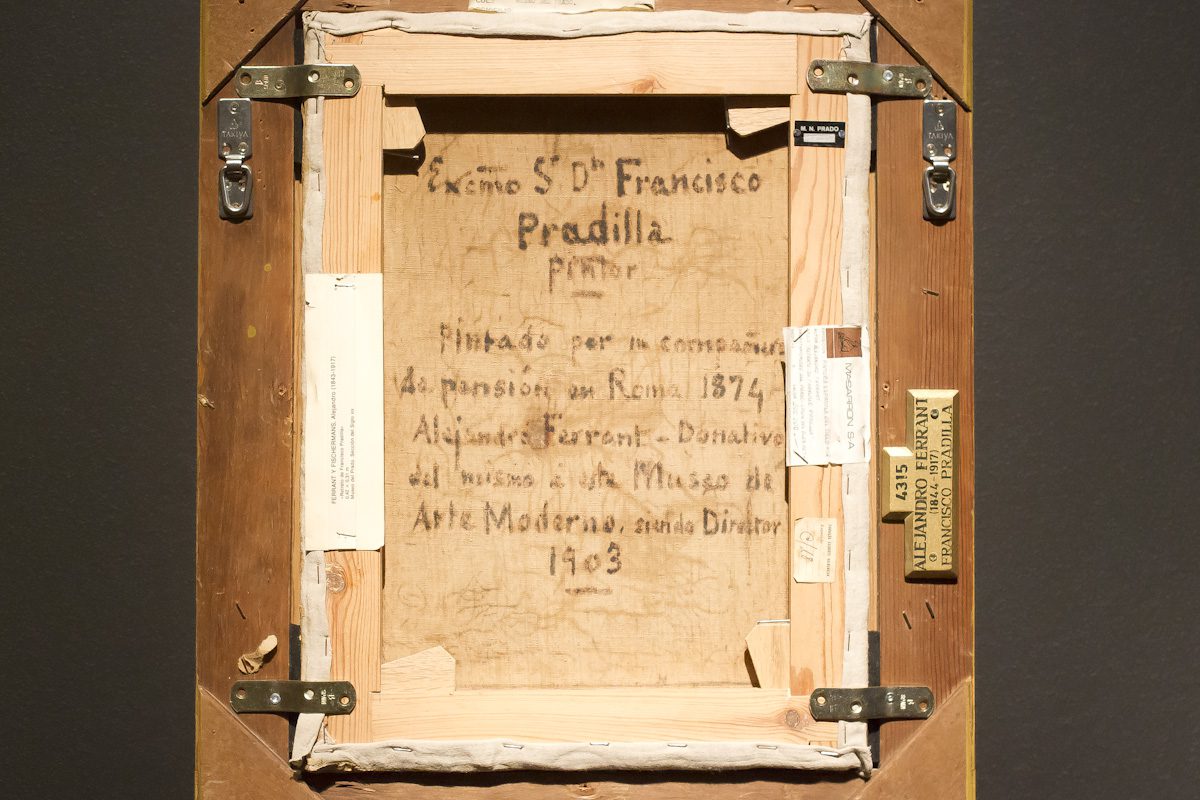 M. N. PRADO
TAKIYA
TAKIYA
Excmo Sr Dn Francisco
Pradilla
Pintor
Pintado por su compañero
de pensión en Roma 1874
Alejandro Ferrant - Donativo
del mismo á este Museo de
Arte Moderno, siendo Director
1903
FERRANT Y FISCHERMANS, Alejandro (1843-1917)
«Retrato de Francisco Pradilla»
Museo del Prado. Sección del Siglo XIX
MACARRON S.A
4315
ALEJANDRO FERRANT
(1844-1917)
FRANCISCO PRADILLA